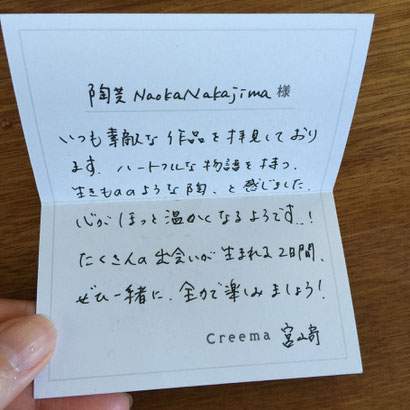 陶芸 NaokaNakajima 様
いつも素敵な作品を拝見しており
ます。ハートフルな物語を持つ、
生きもののような陶、と感じました。
心がほっと温かくなるようです..!
たくさんの出会いが生まれる2日間、
ぜひ一緒に、全力で楽しみましょう!
Creema 宮崎